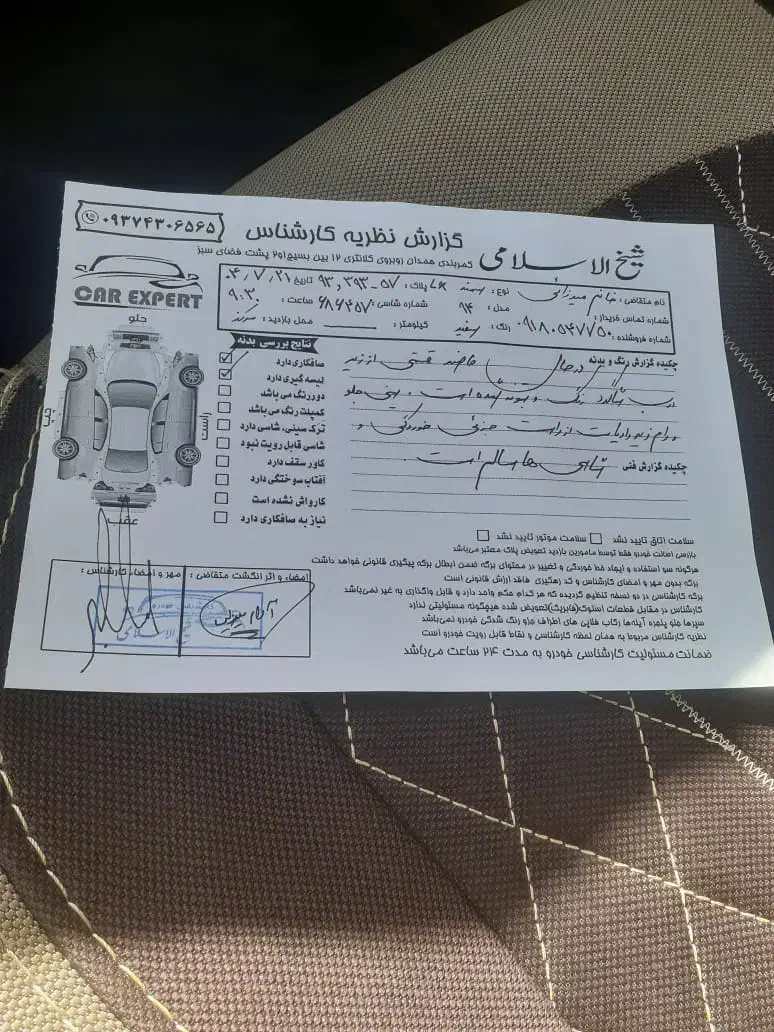 گزارش نظریه کارشناس
۰۹۳۷۴۳۰۶۵۶۵
شیخ الاسلامی
کمربندی همدان روبروی کلانتری ۱۲ بین بسیج ۱و۲ پشت فضای سبز
CAR EXPERT
نام متقاضی : خانم میرزائی نوع : سمند پلاک : ۹۳٫۳۹۳-۵۷ تاریخ ۰۴٫۷٫۲۱
شماره تماس خریدار : مدل : ۹۴ شماره شاسی : ۶۸۶۴۵۷ ساعت : ۹٫۳۰
شماره فروشنده : ۰۹۱۸۰۵۴۷۷۵۰ رنگ : سفید کیلومتر : محل بازدید :
جلو
چپ
راست
عقب
نتایج بررسی بدنه
صافکاری دارد
لیسه گیری دارد
دوررنگ می باشد
کمپلت رنگ می باشد
ترک سینی، شاسی دارد
شاسی قابل رویت نبود
کاور سقف دارد
آفتاب سوختگی دارد
کارواش نشده است
نیاز به صافکاری دارد
چکیده گزارش رنگ و بدنه : در حال حاضر قسمتی از زیر
درب رنگ و بتونه شده است ، سینی جلو
و رام زیر رادیات از راست جزئی خوردگی و
چکیده گزارش فنی : شاسی ها سالم است
سلامت اتاق تایید نشد سلامت موتور تایید نشد
بازرسی اصالت خودرو فقط توسط مامورین بازدید تعویض پلاک معتبر می‌باشد
هرگونه سو استفاده و ایجاد خط خوردگی و تغییر در محتوای برگه ضمن ابطال برگه پیگیری قانونی خواهد داشت
برگه بدون مهر و امضای کارشناس و کد رهگیری فاقد ارزش قانونی است
برگه کارشناسی در دو نسخه تنظیم گردیده که هر کدام حکم واحد دارد و قابل واگذاری به غیر نمی‌باشد
کارشناس در مقابل قطعات استوک(فابریک)تعویض شده هیچگونه مسئولیتی ندارد
سپرها جلو پنجره آینه‌ها رکاب فلاپی های اطراف جزو رنگ شدگی خودرو نمی‌باشد
نظریه کارشناس مربوط به همان لحظه کارشناسی و نقاط قابل رویت خودرو است
ضمانت مسئولیت کارشناسی خودرو به مدت ۲۴ ساعت می‌باشد
امضاء و اثر انگشت متقاضی :
مهر و امضاء کارشناس :
شیخ الاسلامی